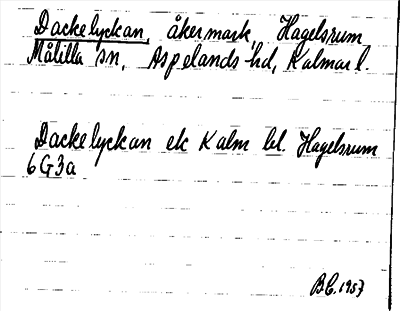 Dackelyckan, åkermark, Hagelsrum
Målilla sn, Aspelands hd, Kalmar l.
Dackelyckan ek Kalm bl. Hagelsrum
6G3a
B.C. 1957